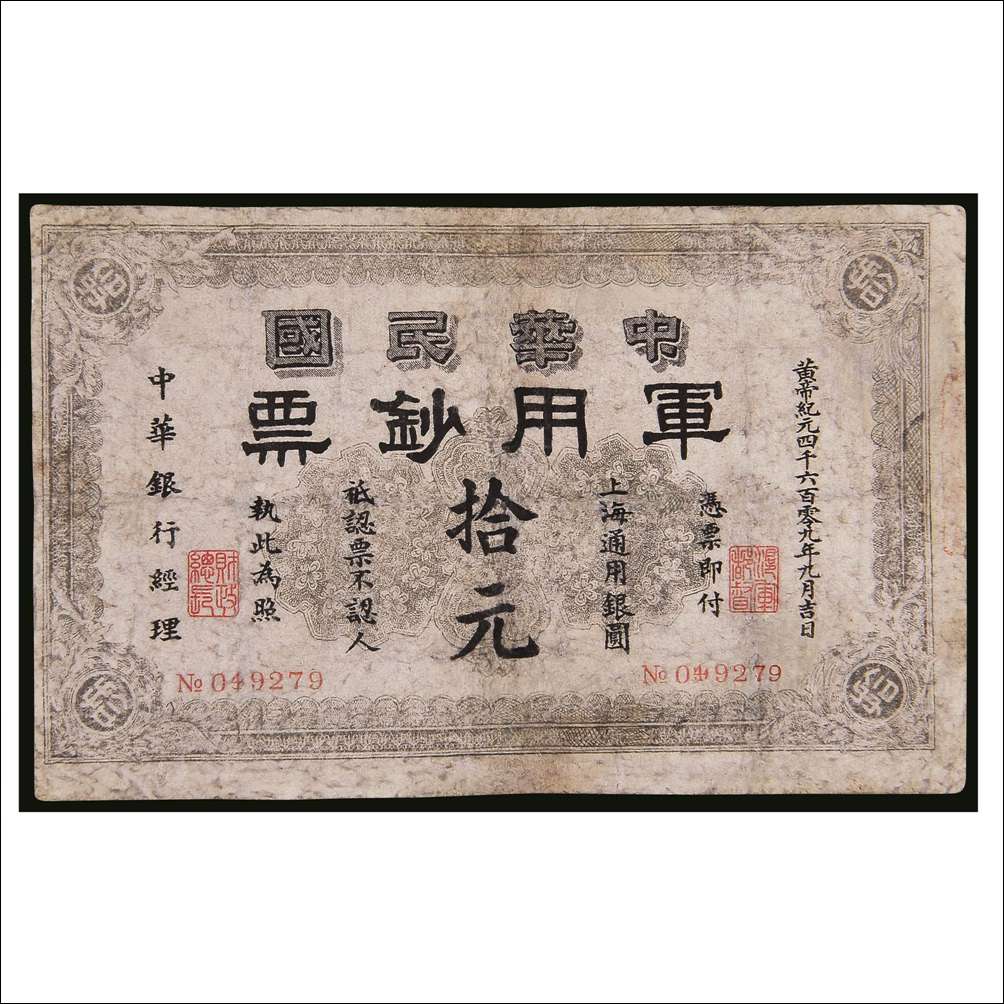 中華民國
軍用鈔票
黄帝紀元四千六百零九年九月吉日
滬軍都督
憑票即付
上海通用銀圓
拾元
祗認票不認人
執此為照
財政總長
中華銀行經理
№ 049279
№ 049279
拾
拾
拾
拾